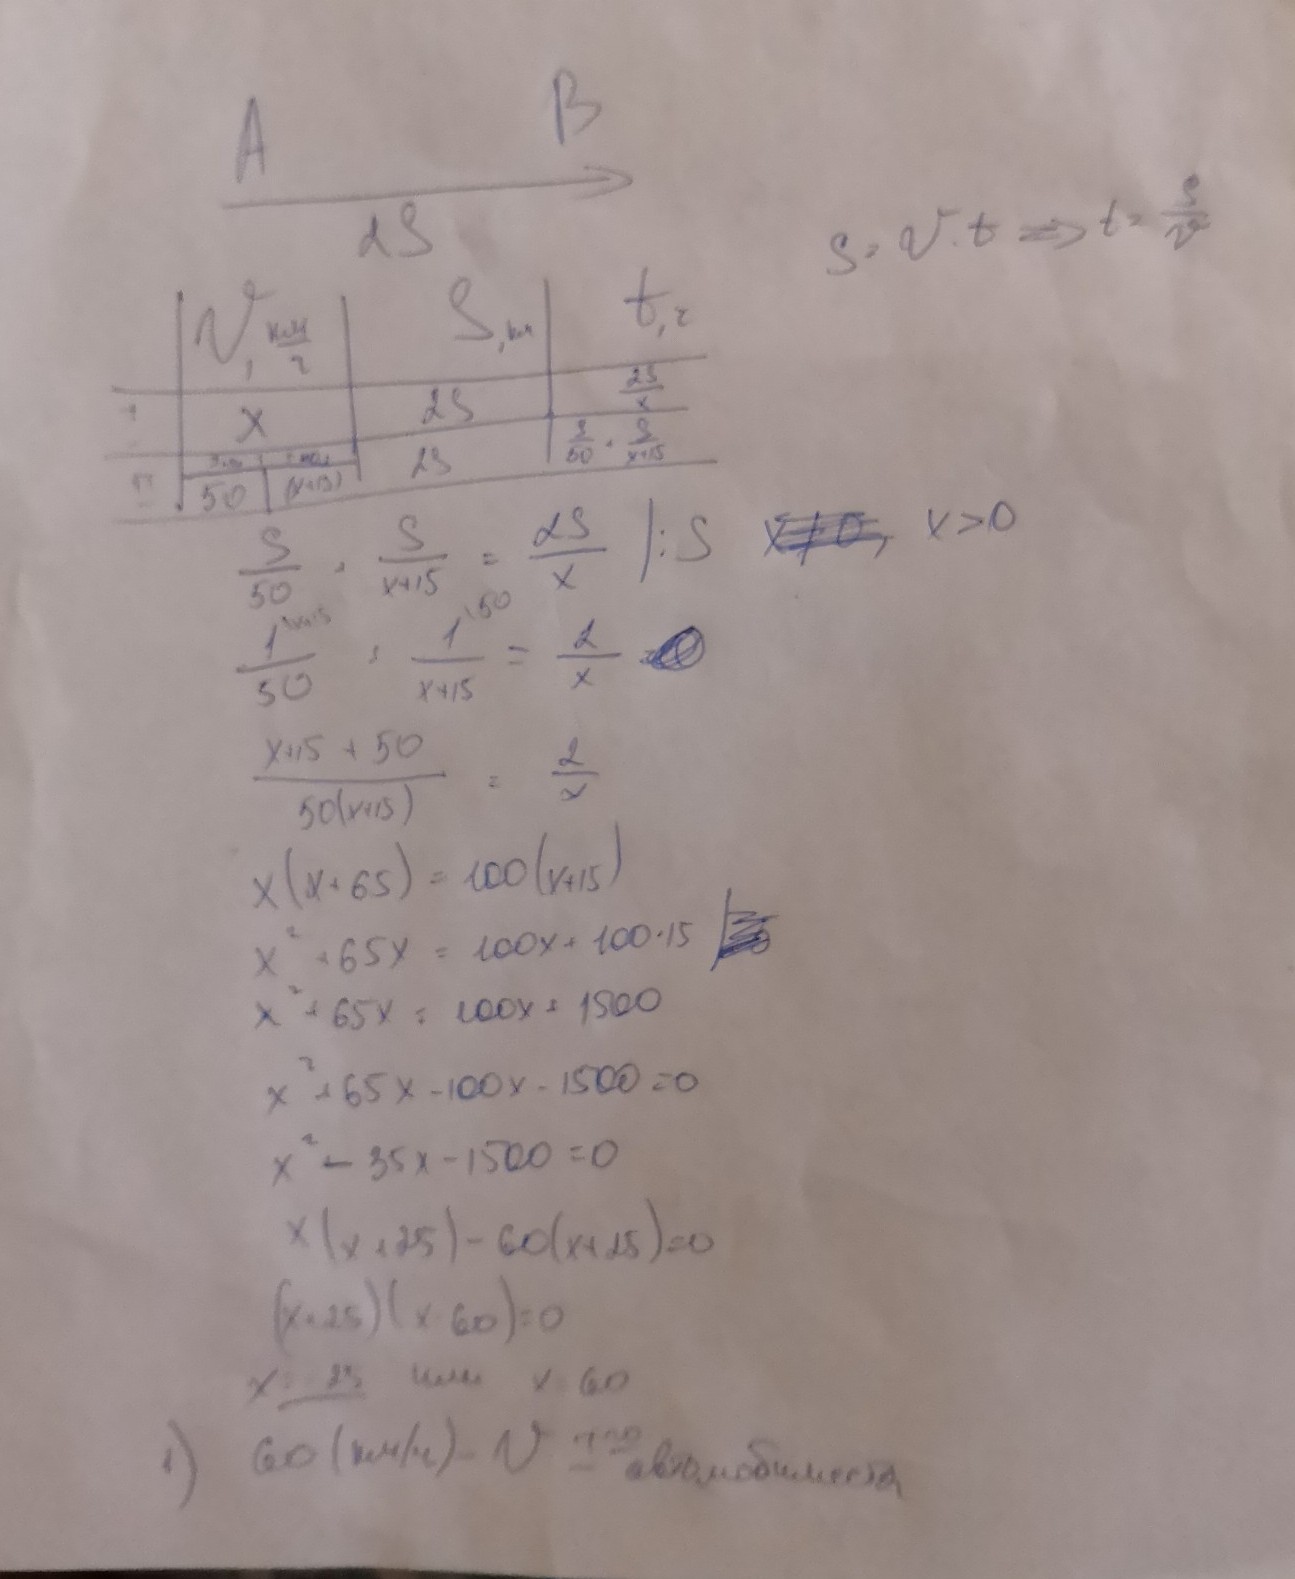 A B
2S
S = V · t => t = S/V
V, км/ч S, км t, ч
I x 2S 2S/x
II 50 (x+15) 2S S/50 + S/(x+15)
S/50 + S/(x+15) = 2S/x |:S x>0
1\x+15/50 + 1\50/(x+15) = 2/x
(x+15 + 50)/(50(x+15)) = 2/x
x(x+65) = 100(x+15)
x² + 65x = 100x + 100·15
x² + 65x = 100x + 1500
x² + 65x - 100x - 1500 = 0
x² - 35x - 1500 = 0
x(x+25) - 60(x+25) = 0
(x+25)(x-60) = 0
x = -25 или x = 60
1) 60 (км/ч) - V I-го автомобилиста